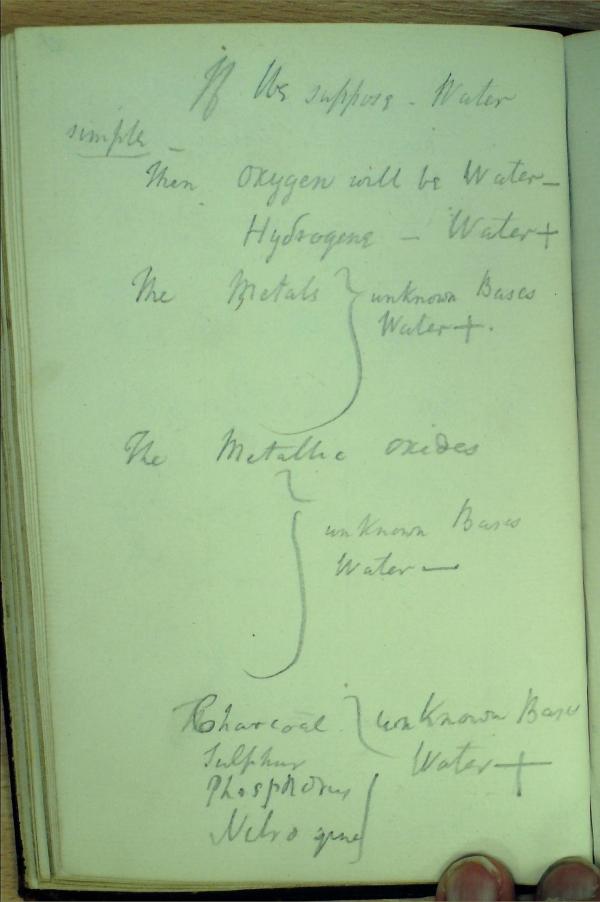 If We suppose - Water
simple -
Then Oxygen will be Water -
Hydrogene - Water +
The Metals } unknown Bases
Water +.
The Metallic oxides
} unknown Bases
Water -
Charcoal } unknown Base
Sulphur Water +
Phosphorus
Nitrogene